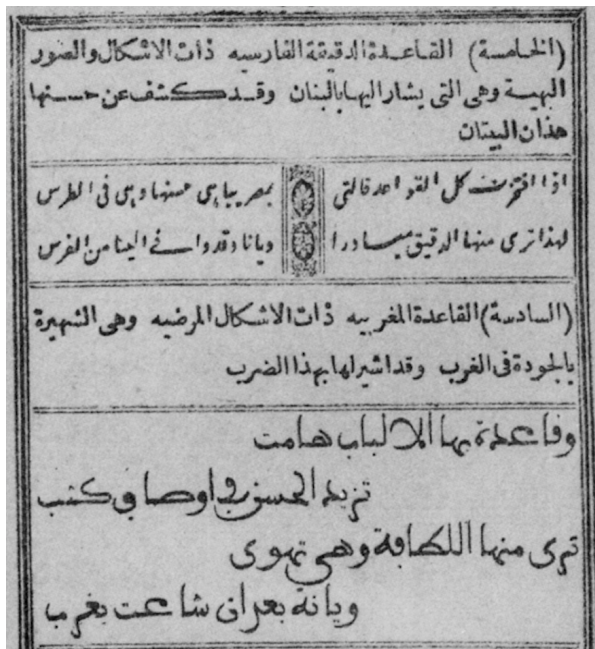 (الخامسة) القاعدة الدقيقة الفارسيه ذات الاشكال والصور
البهية وهى التى يشار اليها بالبنان وقد كشف عن حسنها
هذان البيتان
اذا افتخرت كل القواعد فالتى بمصر يباهى حسنها وهى فى الطرس
لهذا ترى منها الدقيق مبادرا ويانا وقد وافى الينا من الفرس
(السادسة) القاعدة المغربيه ذات الاشكال المرضيه وهى الشهيرة
بالجودة فى الغرب وقد اشير لها بهذا الضرب
وقاعدة بها الالباب هامت
تزيد الحسن فى اوصاف كتب
ترى منها اللطافة وهى تهوى
ويانة بعد ان شاعت بغرب